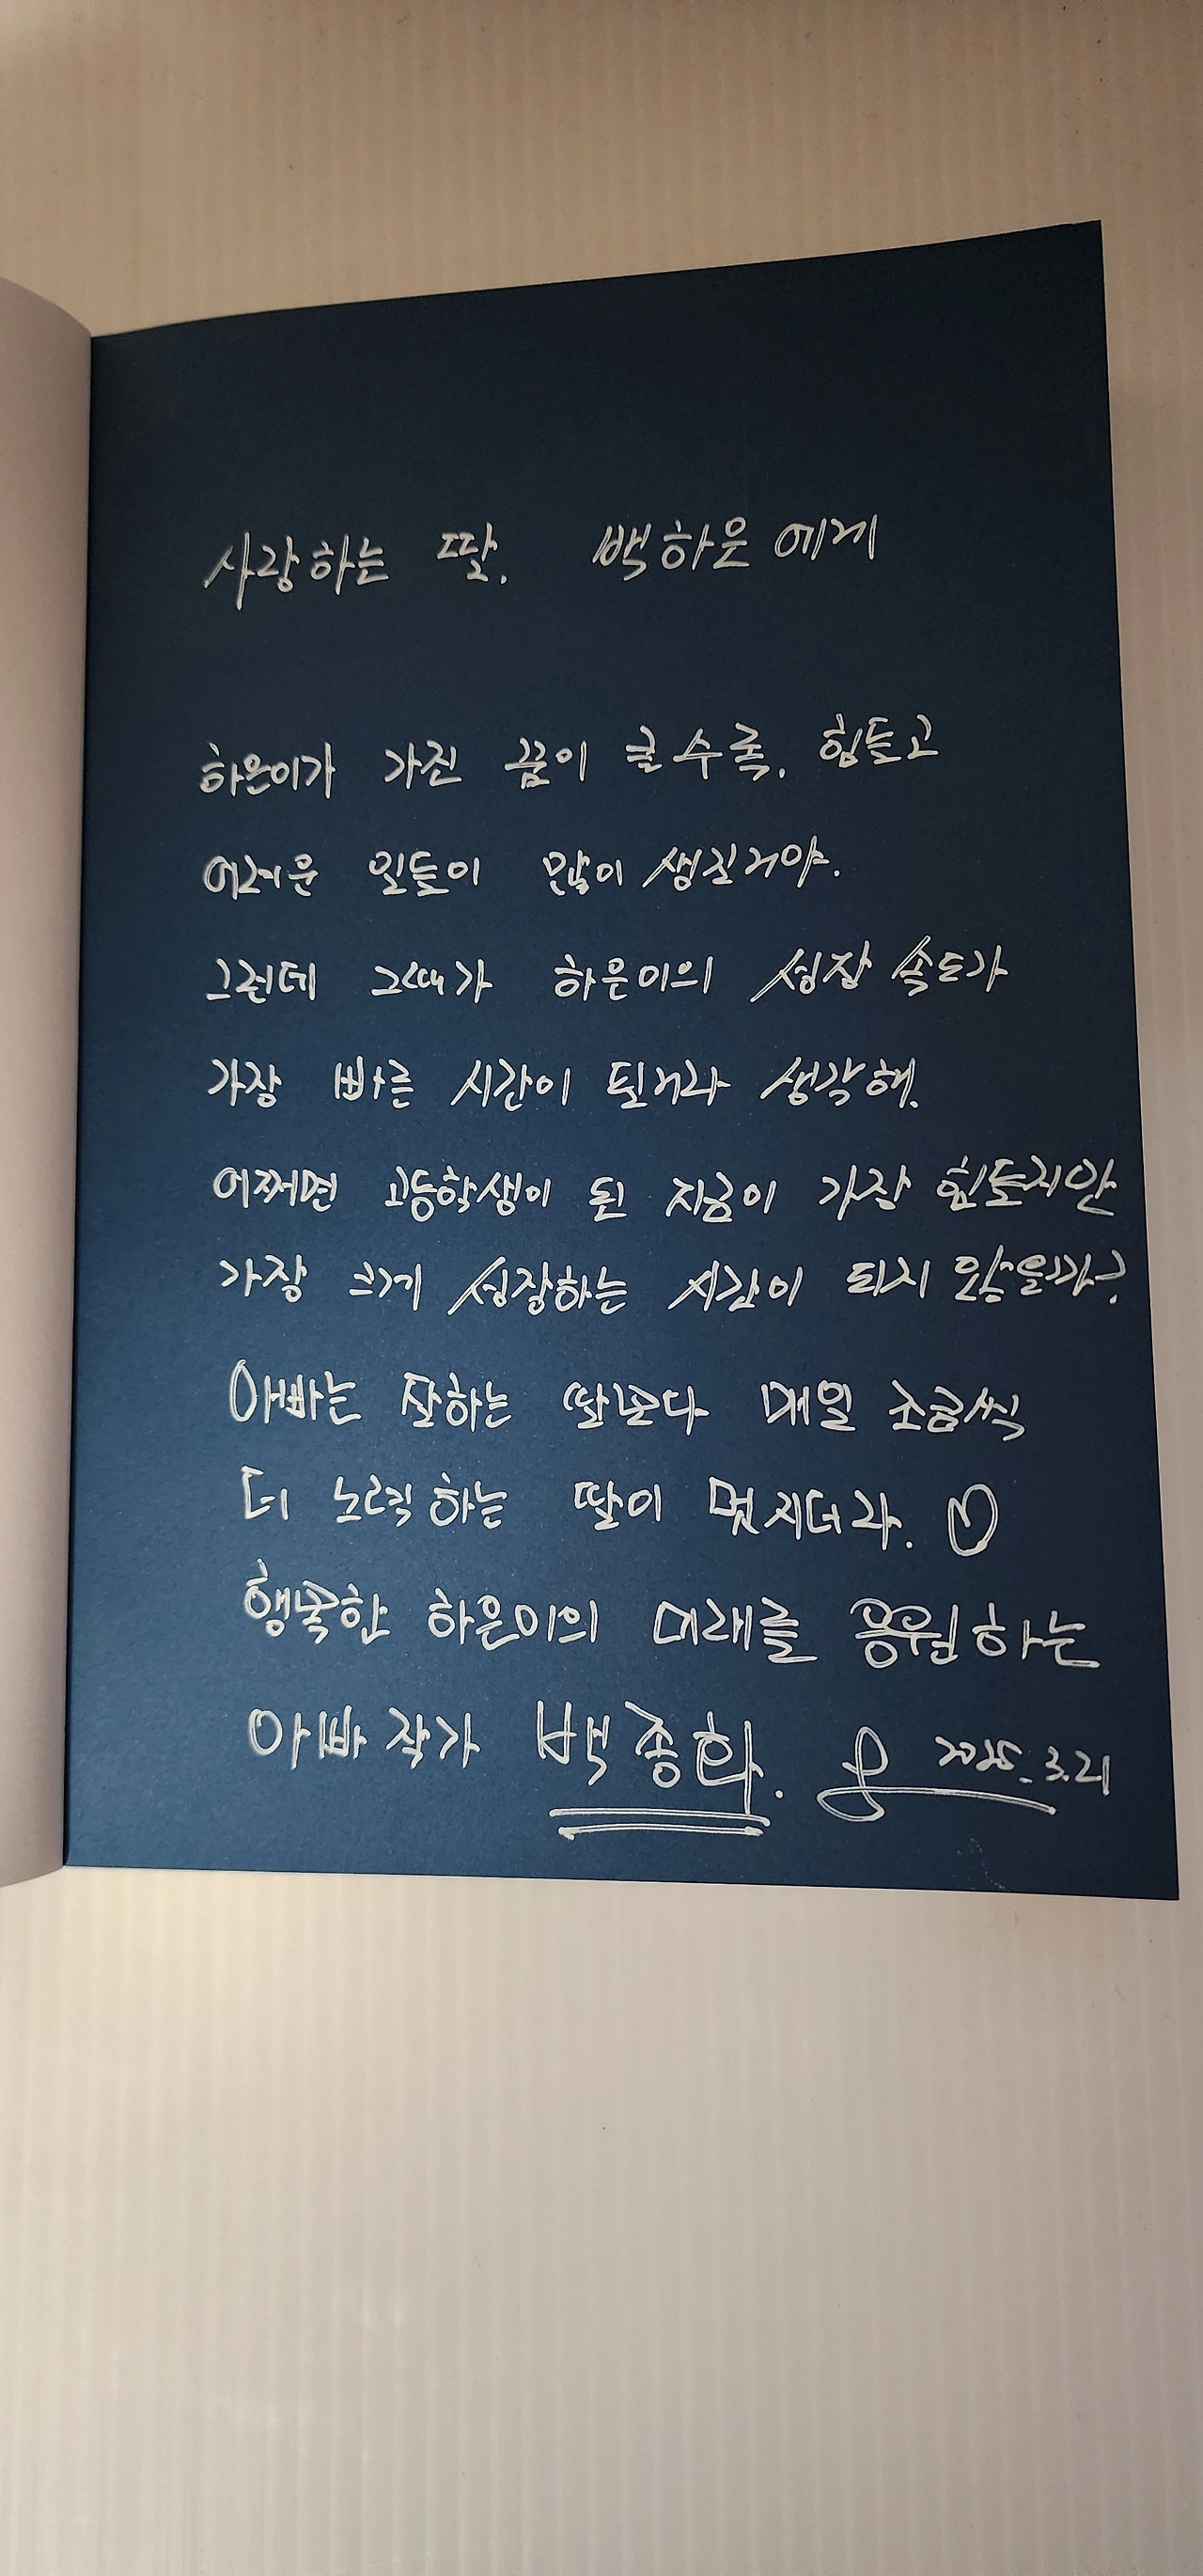 사랑하는 딸. 백하은에게
하은이가 가진 꿈이 클수록. 힘들고
어려운 일들이 많이 생길거야.
그런데 그때가 하은이의 성장 속도가
가장 빠른 시간이 될거라 생각해.
어쩌면 고등학생이 된 지금이 가장 힘들지만
가장 크게 성장하는 시간이 되지 않을까?
아빠는 잘하는 딸보다 매일 조금씩
더 노력하는 딸이 멋지더라.
행복한 하은이의 미래를 응원하는
아빠 작가 백종화. 2025. 3.21